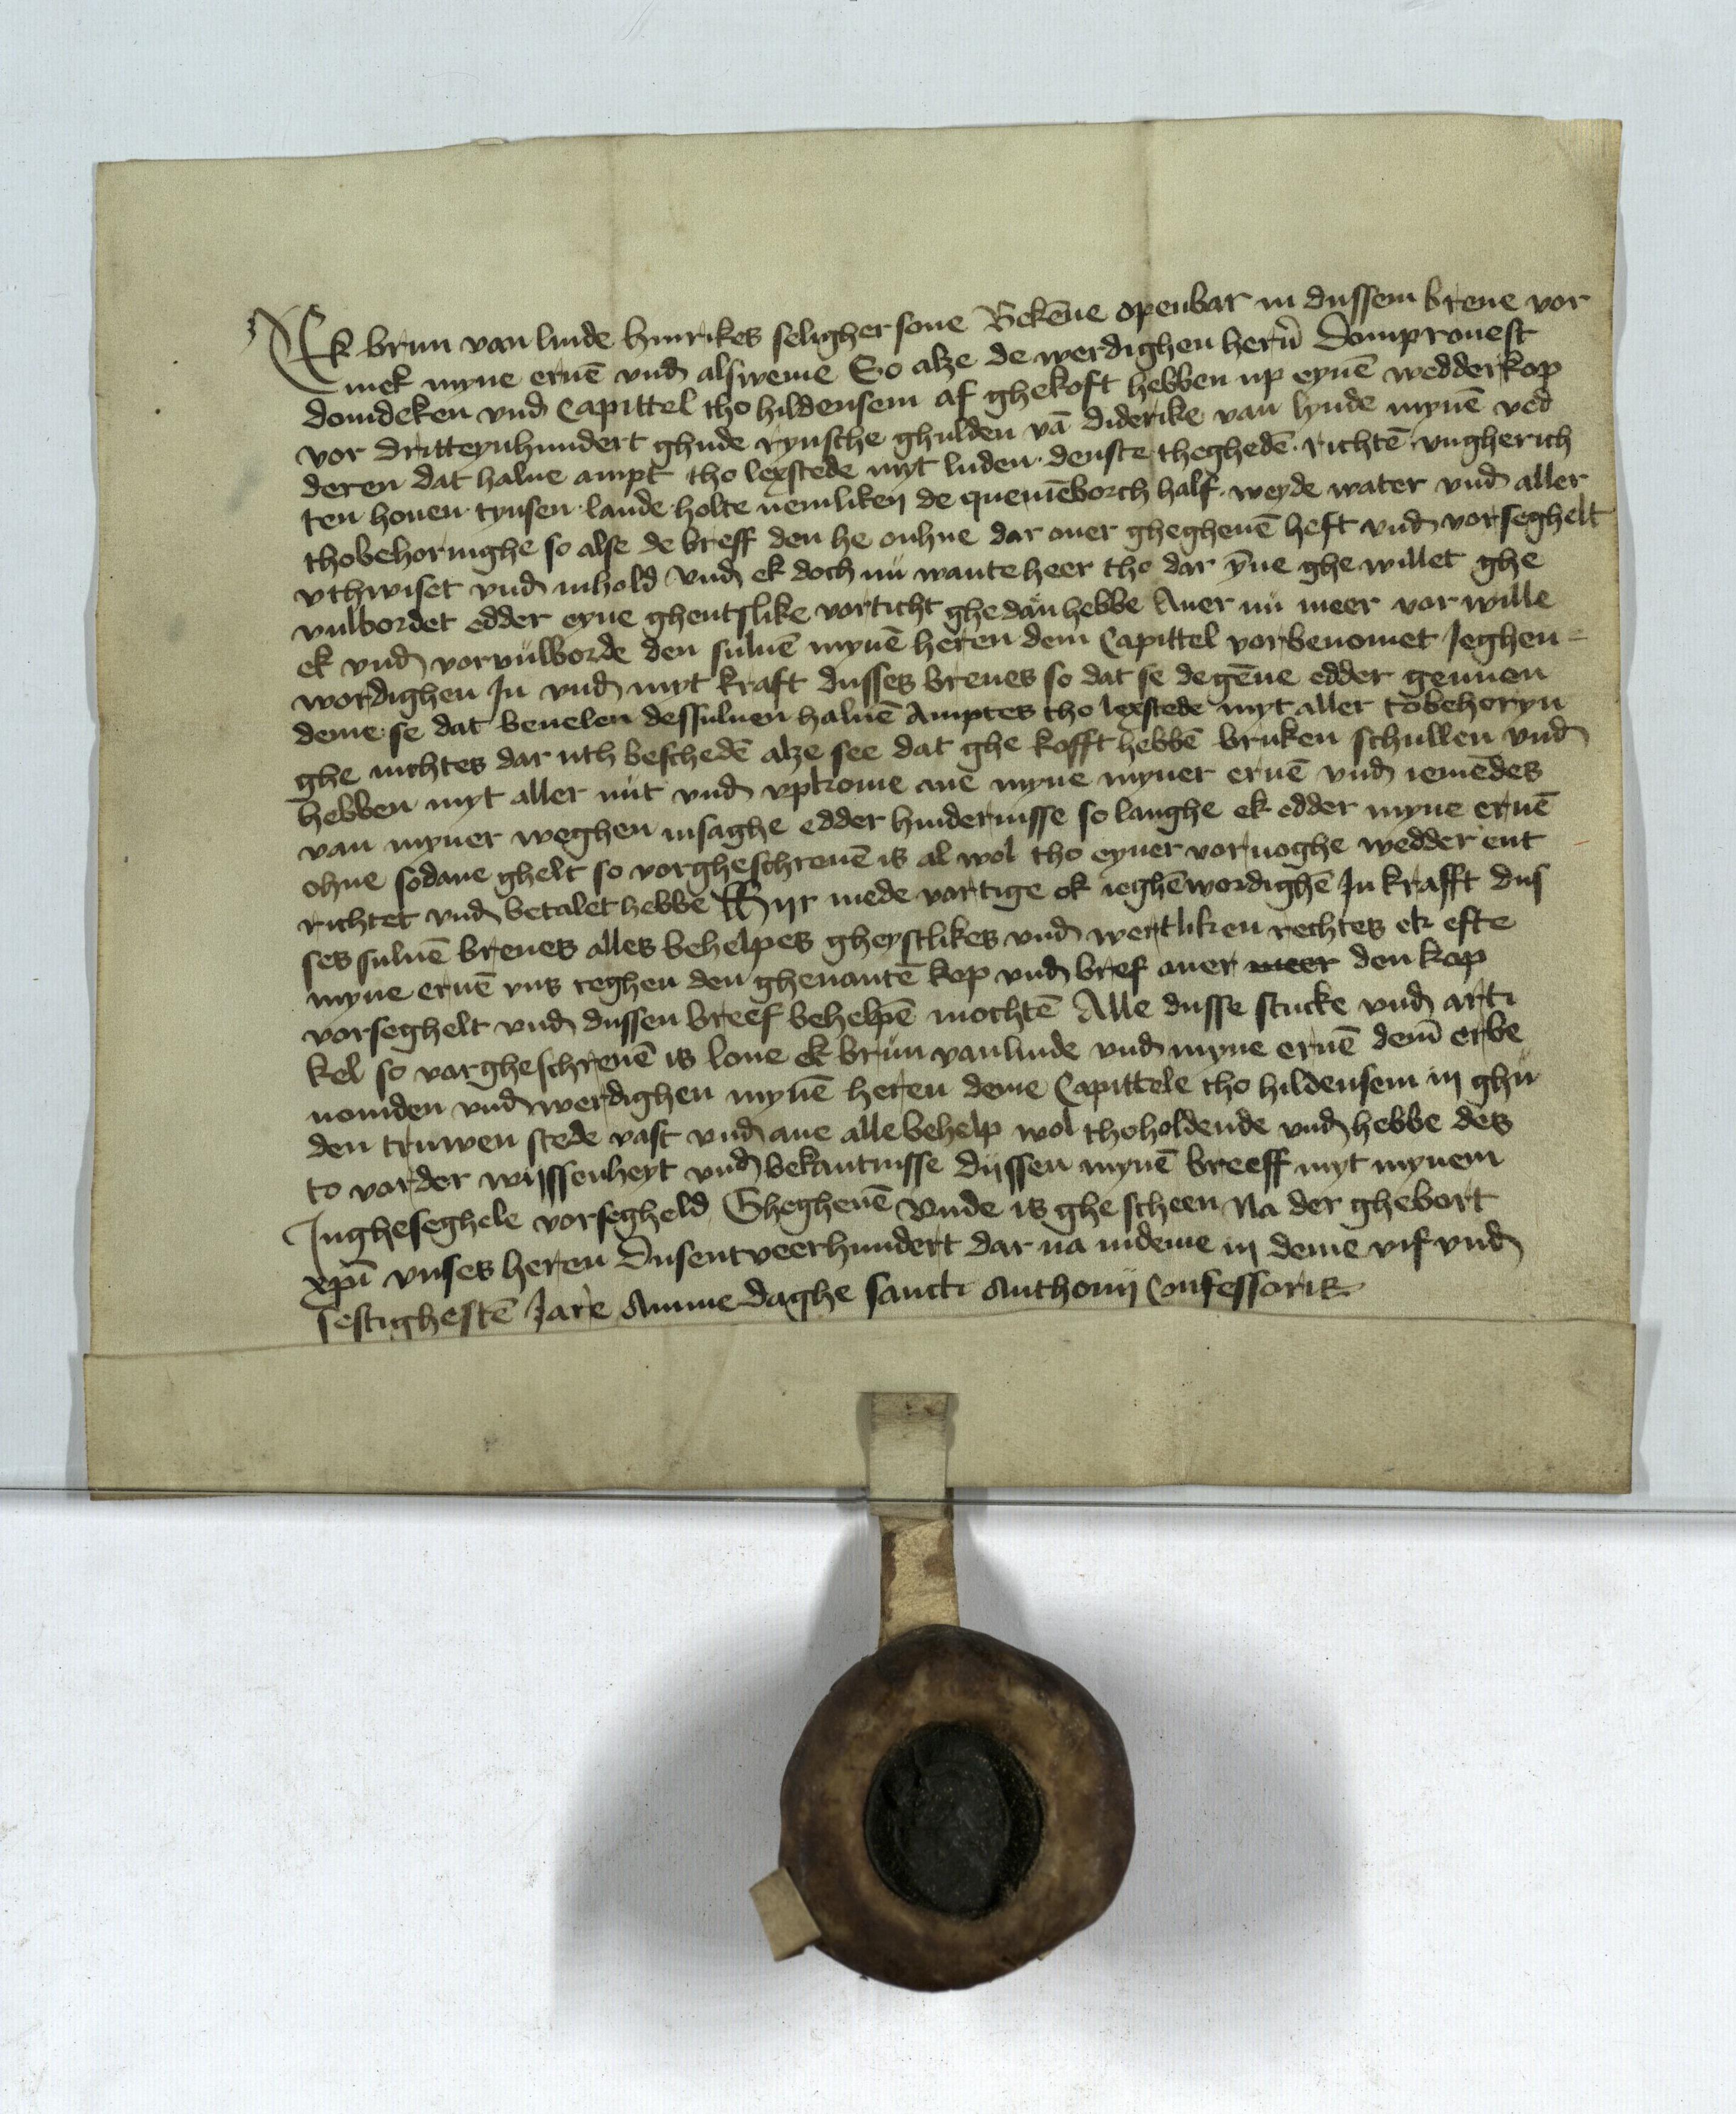 Ek brun van linde hinrikes seligher sone Bekēne openbar in dussem breue vor
mek myne eruē vnd alsweme So alze de werdighen herū Domprouest
domdeken vnd Capittel tho hildensem af ghekoft hebben up eynē wedderkop
vor dritteynhundert ghude rynsche ghulden vā diderike van lynde mynē ved
deren dat halue ampt tho lexstede myt luden denste theghedē richtē vngherich
ten houen tynsen lande holte nemliken de quenēborch half weyde water vnd aller
thobehoringhe so alse de breff den he onhne dar ouer ghegheuē heft vnd vorseghelt
vthwiset vnd inhold Vnd ek doch nů wante heer tho dar ȳne ghe willet ghe
vulbordet edder eyne ghentslike vorticht ghedan hebbe Auer nů meer vor wille
ek vnd vorvulborde den suluē mynē heren dem Capittel vorbenomet Jeghen
wordighen Jn vnd myt kraft dusses breues so dat se degēne edder gennen
deme se dat beuelen dessuluen haluē Amptes tho lexstede myt aller tobehoryn
ghe nichtes dar uth beschedē alze see dat ghe kofft hebbē bruken schullen vnd
hebben myt aller nůt vnd vpkome ane myne myner eruē vnd iemēdes
van myner weghen insaghe edder hindernisse so langhe ek edder myne eruē
ohne sodane ghelt so vorgheschreuē is al wol tho eyner vornoghe wedder ent
richtet vnd betalet hebbe Hijr mede vortige ek ieghēwordighē Jn krafft dus
ses suluē breues alles behelpes gheystlikes vnd wertliken rechtes ek efte
myne eruē vns teghen den ghenantē kop vnd bref ouer meer den kop
vorseghelt vnd dussen breef behelpē mochtē Alle dusse stucke vnd arti
kel so vorgheschreuē is loue ek brun van linde vnd myne eruē dem̄ erbe
nomden vnd werdighen mynē heren deme Capittele tho hildensem in ghu
den truwen stede vast vnd ane alle behelp wol tho holdende vnd hebbe des
to vorder wijssenheyt vnd bekantnisse dijssen mynē breeff myt mynem
Jngheseghele vorsegheld Ghegheuē Vnde is ghe scheen Na der ghebort
xpī vnses heren Dusentveerhundert dar na indeme in deme vif vnd
sestighestē Jare Amme daghe sancti Anthonij Confessoris